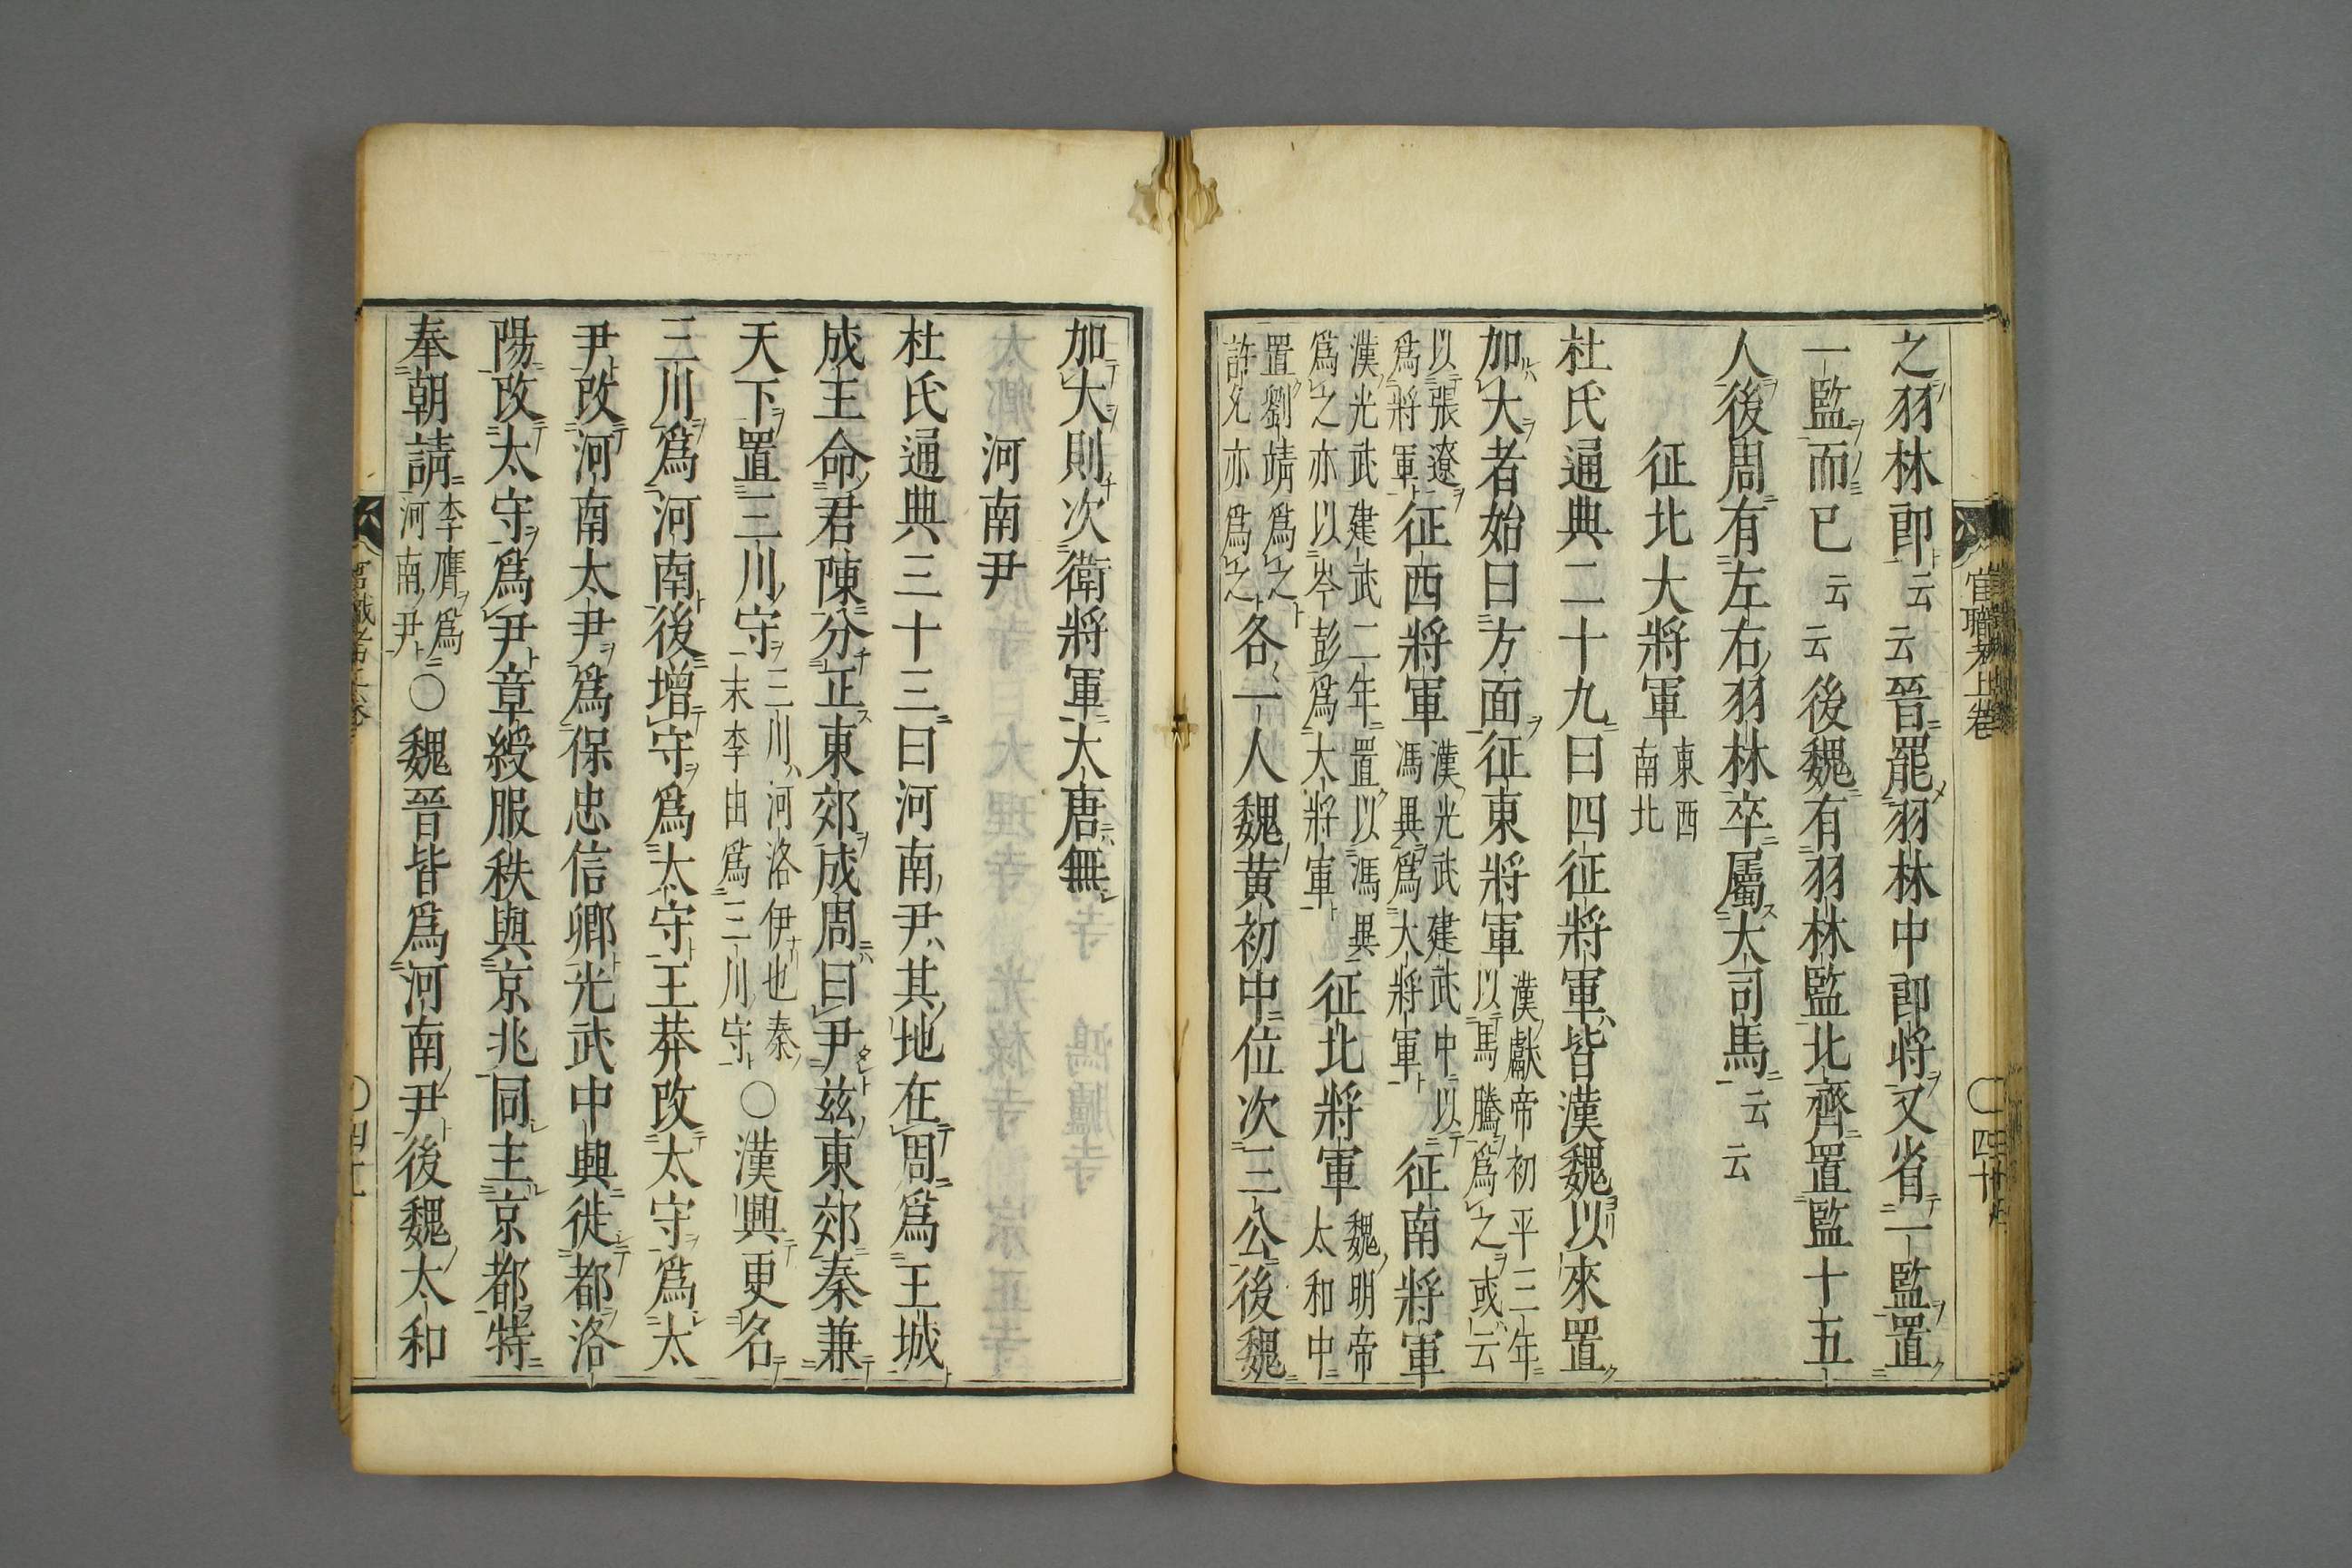 之羽林郎云云晉罷羽林中郎將又省一監置
一監而已云云後魏有羽林監北齊置監十五
人後周有左右羽林卒屬大司馬云云
征北大將軍東西南北
杜氏通典二十九曰四征將軍皆漢魏以來置
加大者始曰方面征東將軍漢獻帝初平三年以馬騰爲之或云
以張遼爲將軍征西將軍漢光武建武中以馮異爲大將軍征南將軍
漢光武建武二年置以馮異爲之亦以岑彭爲大將軍征北將軍魏明帝太和中
置劉靖爲之許允亦爲之各一人魏黃初中位次三公後魏
官職考上卷
四十
加大則次衛將軍大唐無
河南尹
杜氏通典三十三曰河南尹其地在周爲王城
成王命君陳分正東郊成周曰尹茲東郊秦兼
天下置三川守三川河洛伊也秦末李由爲三川守〇漢興更名
三川爲河南後增守爲太守王莽改太守爲太
尹改河南太尹爲保忠信卿光武中興徙都洛
陽改太守爲尹章綬服秩與京兆同主京都特
奉朝請李膺爲河南尹〇魏晉皆爲河南尹後魏太和